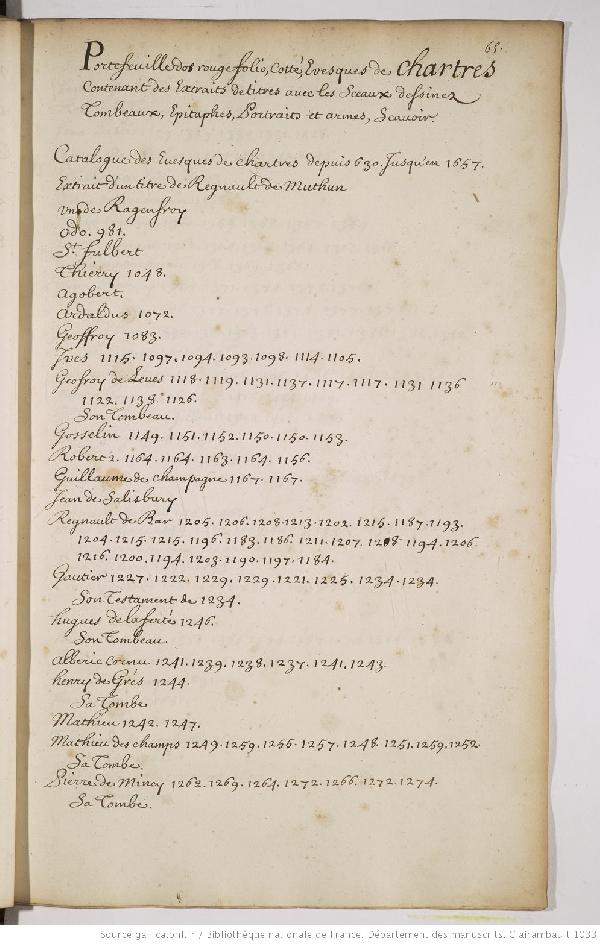 65.
Portefeuille dos rouge folio, Cotté, Evesques de chartres
Contenant des Extraits de titres avec les Sceaux dessinez
Tombeaux, Epitaphes, Portraits et armes, Scauoir
Catalogue des Euesques de chartres depuis 630. Jusqu'en 1657.
Extrait d'un titre de Regnault de Muthun
un de Ragenfroy
odo. 981.
St. fulbert
Thierry 1048.
agobert.
ardaldus 1072.
Geoffroy 1083.
Jves 1115. 1097. 1094. 1093. 1098. 1114. 1105.
Geofroy de Leues 1118. 1119. 1131. 1137. 1117. 1117. 1131 1136
1122. 1138. 1126.
Son Tombeau.
Gosselin 1149. 1151. 1152. 1150. 1150. 1153.
Robert 2. 1164. 1164. 1163. 1164. 1156.
Guillaume de champagne 1167. 1167.
Jean de Salisbury
Regnault de Bar 1205. 1206. 1208. 1213. 1202. 1215. 1187. 1193.
1204. 1215. 1215. 1196. 1183. 1186. 1211. 1207. 1208. 1194. 1206
1216. 1200. 1194. 1203. 1190. 1197. 1184.
Gautier 1227. 1222. 1229. 1229. 1221. 1225. 1234. 1234.
Son Testament de 1234.
hugues de la ferté 1246.
Son Tombeau.
alberic Cornu 1241. 1239. 1238. 1237. 1241. 1243.
henry de Grés 1244.
Sa Tombe
Mathieu 1242. 1247.
Mathieu des champs 1249. 1259. 1256. 1257. 1248. 1251. 1259. 1252.
Sa Tombe.
Pierre de Mincy 1262. 1269. 1264. 1272. 1266. 1272. 1274.
Sa Tombe.
Source gallica.bnf.fr / Bibliothèque nationale de France. Département des manuscrits. Clairambault 1033